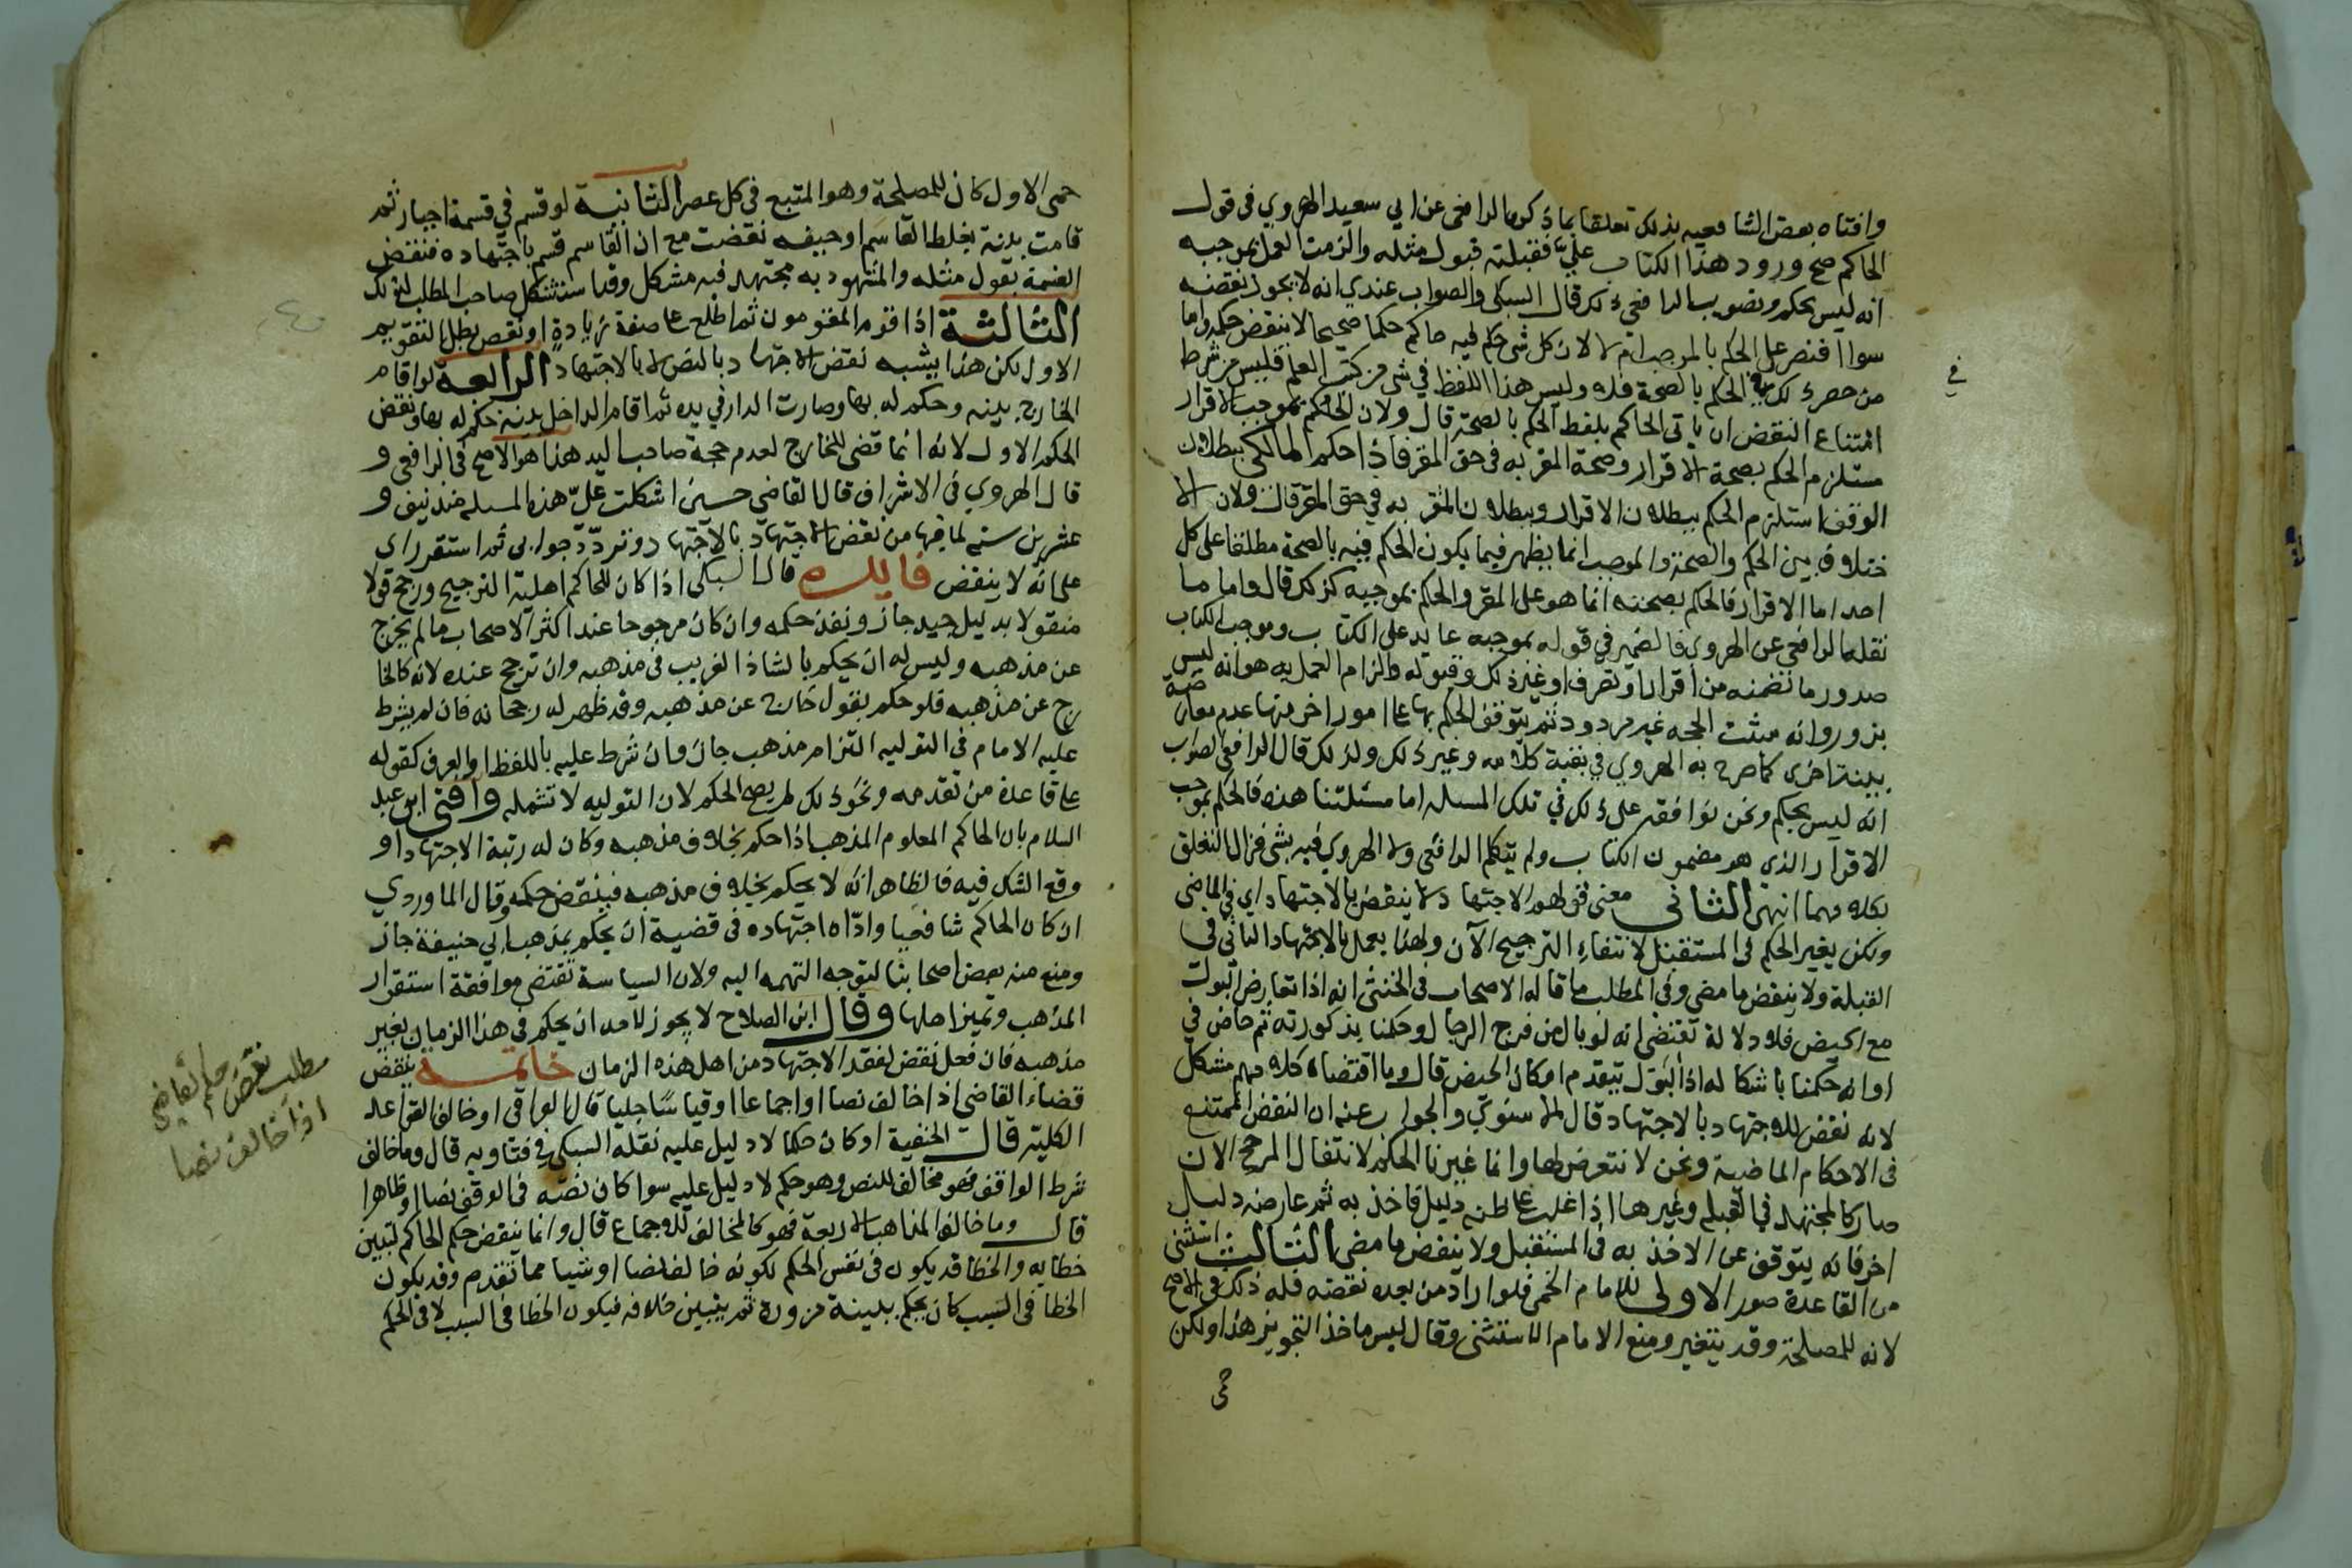 وافتاه بعض الشافعيه بذلك تعلقا بما ذكره الرافعى عن ابي سعيد الهروي في قول
الحاكم صح ورود هذا الكتاب عليّ فقبلته قبول مثله والزمت العمل بموجبه
انه ليس بحكم وتصويب الرافعى ذلك قال السبكى والصواب عندي انه لا يجوز نقضه
سوا اقتصر على الحكم بالموجب ام لا لان كل شى حكم فيه حاكم حكما صحيحا لا ينقض حكمه واما
من حصر ذلك في الحكم بالصحة فلا وليس هذا اللفظ في شى من كتب العلم فليس من شرط
امتناع النقض ان ياتى الحاكم بلفظ الحكم بالصحة قال ولان الحكم بموجب الاقرار
مستلزم الحكم بصحة الاقرار وصحة المقر به في حق المقر فاذا حكم المالكى ببطلان
الوقف استلزم الحكم ببطلان الاقرار وببطلان المقر به في حق المقر قال ولان الا
ختلاف بين الحكم والصحة والموجب انما يظهر فيما يكون الحكم فيه بالصحة مطلقا على كل
احد اما الاقرار فالحكم بصحته انما هو على المقر والحكم بموجبه كذلك قال واما ما
نقله الرافعى عن الهروى فالضمير في قوله بموجبه عايد على الكتاب وموجب الكتاب
صدور ما تضمنه من اقرار او تصرف او غير ذلك وقبوله والزام العمل به هو انه ليس
بزور وانه مثبت الحجه غير مردود ثم يتوقف الحكم بها على امور اخر منها عدم معارضة
بينة اخرى كما صرح به الهروي في بقية كلامه وغير ذلك ولذلك قال الرافعى الصواب
انه ليس بحكم ونحن نوافقه على ذلك في تلك المسله اما مسئلتنا هذه فالحكم بموجب
الاقرار الذى هو مضمون الكتاب ولم يتكلم الرافعى ولا الهروي فيه بشى فزال التعلق
بكلامهما انتهى الثانى معنى قولهم الاجتهاد لا ينقض بالاجتهاد اي في الماضى
ولكن يغير الحكم فى المستقبل لانتفاء الترجيح الآن ولهذا يعمل بالاجتهاد الثانى فى
القبلة ولا ينقض ما مضى وفى المطلب ما قاله الاصحاب فى الخنثى انه اذا تعارض البول
مع الحيض فلا دلالة تقتضى انه لو بال من فرج الرجال وحكمنا بذكورته ثم حاض في
اوانه حكمنا باشكاله اذ البول يتقدم امكان الحيض قال وما اقتضاه كلامهم مشكل
لانه نقض للاجتهاد بالاجتهاد قال الاسنوي والجواب عنه ان النقض الممتنع
فى الاحكام الماضية ونحن لا نتعرض لها وانما غيرنا الحكم لانتفال المرجح الان
صار كالمجتهد في القبله وغيرها اذا غلب على ظنه دليل فاخذ به ثم عارضه دليل
اخر فانه يتوقف عن الاخذ به فى المستقبل ولا ينقض ما مضى الثالث استثنى
من القاعدة صور الاولى للامام الحمى فلو اراد من بعده نقضه فله ذلك فى الاصح
لانه للمصلحة وقد يتغير ومنع الامام الاستثنى وقال ليس ماخذ التجويز هذا ولكن
حمى
في
حمى الاول كان للمصلحة وهو المتبع فى كل عصر الثانية لو قسم في قسمة اجبار ثم
قامت بينة بغلط القاسم او حيفه نقضت مع ان القاسم قسم باجتهاده فنقض
القسمة بقول مثله والمشهود به مجتهد فيه مشكل وقد استشكل صاحب المطلب لذلك
الثالثة اذا قوم المقومون ثم اطلع على صفة زيادة او نقص بطل التقويم
الاول لكن هذا يشبه نقض الاجتهاد بالنص لا بالاجتهاد الرابعة لو اقام
الخارج بينه وحكم له بها وصارت الدار في يده ثم اقام الداخل بينة حكم له بها ونقض
الحكم الاول لانه انما قضى للخارج لعدم حجة صاحب اليد هذا هو الاصح فى الرافعى و
قال الهروي فى الاشراف قال القاضى حسين اشكلت علىّ هذه المسله منذ نيف و
عشرين سنه لما فيها من نقض الاجتهاد بالاجتهاد وتردّد جوابى ثم استقر راى
على انه لا ينقض فايده قال السبكى اذا كان للحاكم اهلية الترجيح ورجح قولا
منقولا بدليل جيد جاز ونفذ حكمه وان كان مرجوحا عند اكثر الاصحاب ما لم يخرج
عن مذهبه وليس له ان يحكم بالشاذ الغريب فى مذهبه وان ترجح عنده لانه كالخا
رج عن مذهبه فلو حكم بقول خارج عن مذهبه وقد ظهر له رجحانه فان لم يشرط
عليه الامام فى التوليه التزام مذهب جاز وان شرط عليه باللفظ او العرف كقوله
على قاعدة من تقدمه ونحو ذلك لم يصح الحكم لان التوليه لا تشمله وافتى ابن عبد
السلام بان الحاكم المعلوم المذهب اذا حكم بخلاف مذهبه وكان له رتبة الاجتهاد او
وقع الشك فيه فالظاهر انه لا يحكم بخلاف مذهبه فينقض حكمه وقال الماوردي
ان كان الحاكم شافعيا وادّاه اجتهاده فى قضية ان يحكم بمذهب ابي حنيفة جاز
ومنع منه بعض اصحابنا لتوجه التهمه اليه ولان السياسة تقتضى موافقة استقرار
المذهب وتميز اهلها وقال ابن الصلاح لا يجوز لاحد ان يحكم فى هذا الزمان بغير
مذهبه فان فعل نقض لفقد الاجتهاد من اهل هذه الزمان خاتمة ينقض
قضاء القاضى اذا خالف نصا او اجماعا او قياسا جليا قال العراقى او خالف القواعد
الكلية قالت الحنفية او كان حكما لا دليل عليه نقله السبكى فى فتاويه قال وما خالف
شرط الواقف فهو مخالف للنص وهو حكم لا دليل عليه سوا كان نصه فى الوقف نصا او ظاهرا
قال وما خالف المذاهب الاربعة فهو كالمخالف للاجماع قال وانما ينقض حكم الحاكم لتبين
خطايه والخطا قد يكون فى نفس الحكم لكونه خالف نصا او شيا مما تقدم وقد يكون
الخطا فى السبب كان يحكم ببينة مزورة ثم يتبين خلافه فيكون الخطا فى السبب لا فى الحكم
مطلب نقض حكم القاضى
اذا خالف نصا